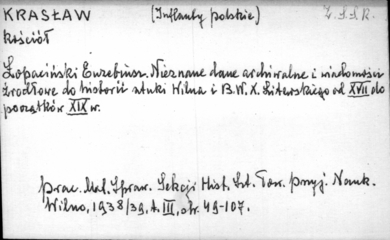 KRASŁAW (Inflanty polskie) Z.S.S.R.
kościół
Łopaciński Euzebiusz. Nieznane dane archiwalne i wiadomości
źródłowe do historii sztuki Wilna i B.W.X. Litewskiego od XVII do
początków XIX w.
Prac. Mat. Spraw. Sekcji Hist. Szt. Tow. Przyj. Nauk.
Wilno, 1938/39, t. III, str. 49-107.